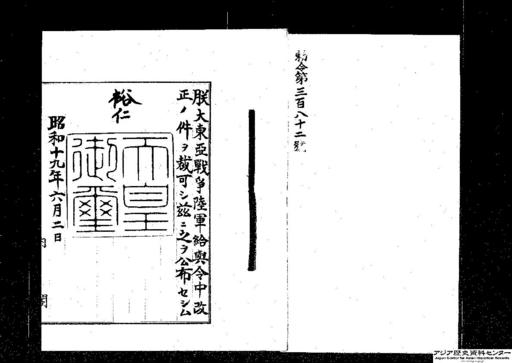 勅令第三百八十二號
朕大東亞戰爭陸軍給與令中改
正ノ件ヲ裁可シ玆ニ之ヲ公布セシム
裕仁
天皇
御璽
昭和十九年六月二日
内閣
アジア歴史資料センター
Japan Center for Asian Historical Records